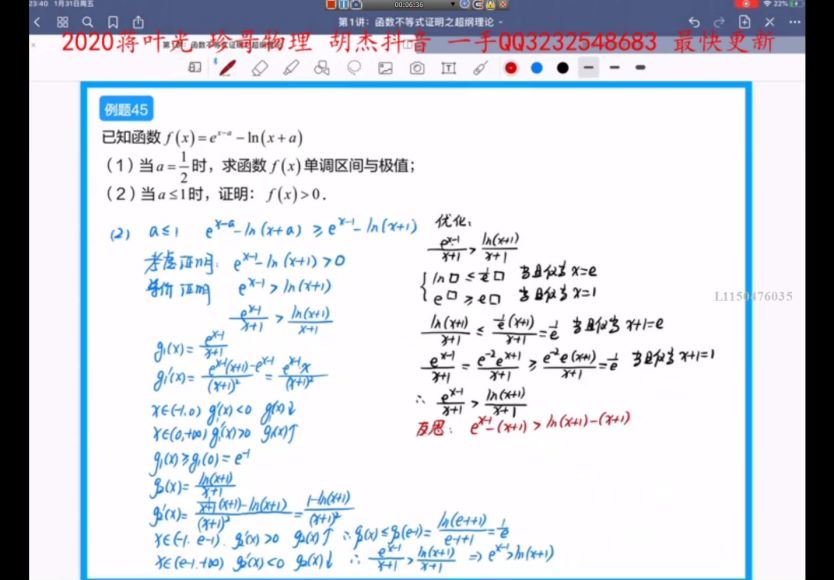 23:40 1月31日周五
00:06:36
22%
第1讲：函数不等式证明之超纲理论
2020蒋叶光 珍哥物理 胡杰抖音 一手QQ3232548683 最快更新
例题45
已知函数 f(x)=e^{x-a}-ln(x+a)
(1) 当a=1/2时，求函数 f(x) 单调区间与极值；
(2) 当a≤1时，证明：f(x)>0.
(2) a≤1 e^{x-a}-ln(x+a)≥e^{x-1}-ln(x+1)
考虑证明: e^{x-1}-ln(x+1)>0
等价证明 e^{x-1}>ln(x+1)
e^{x-1}/(x+1) > ln(x+1)/(x+1)
g₁(x)=e^{x-1}/(x+1)
g₁'(x)=(e^{x-1}(x+1)-e^{x-1})/(x+1)²=e^{x-1}x/(x+1)²
x∈(-1,0) g₁'(x)<0 g₁(x)↓
x∈(0,+∞) g₁'(x)>0 g₁(x)↑
g₁(x)≥g₁(0)=e^{-1}
g₂(x)=ln(x+1)/(x+1)
g₂'(x)=(1/(x+1)(x+1)-ln(x+1))/(x+1)²=(1-ln(x+1))/(x+1)²
x∈(-1,e-1) g₂'(x)>0 g₂(x)↑ ∴g₂(x)≤g₂(e-1)=ln(e-1+1)/(e-1+1)=1/e
x∈(e-1,+∞) g₂'(x)<0 g₂(x)↓ ∴ e^{x-1}/(x+1)>ln(x+1)/(x+1) ⇒ e^{x-1}>ln(x+1)
优化:
e^{x-1}/(x+1) > ln(x+1)/(x+1)
{ ln□≤1/e□ 当且仅当 x=e
e^□≥e□ 当且仅当 x=1
ln(x+1)/(x+1) ≤ 1/e(x+1)/(x+1)=1/e 当且仅当 x+1=e
e^{x-1}/(x+1)=e^{-2}e^{x+1}/(x+1)≥e^{-2}e(x+1)/(x+1)=1/e 当且仅当 x+1=1
∴ e^{x-1}/(x+1)>ln(x+1)/(x+1)
反思: e^{x-1}-(x+1)>ln(x+1)-(x+1)
L1150476035